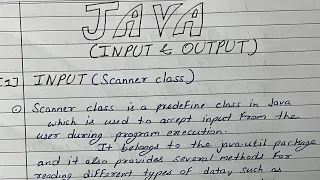 JAVA
(INPUT & OUTPUT)
[1] INPUT (Scanner class)
Scanner class is a predefine class in Java
which is used to accept input from the
user during program execution.
It belongs to the java.util package
and it also provides several methods for
reading different types of data, such as